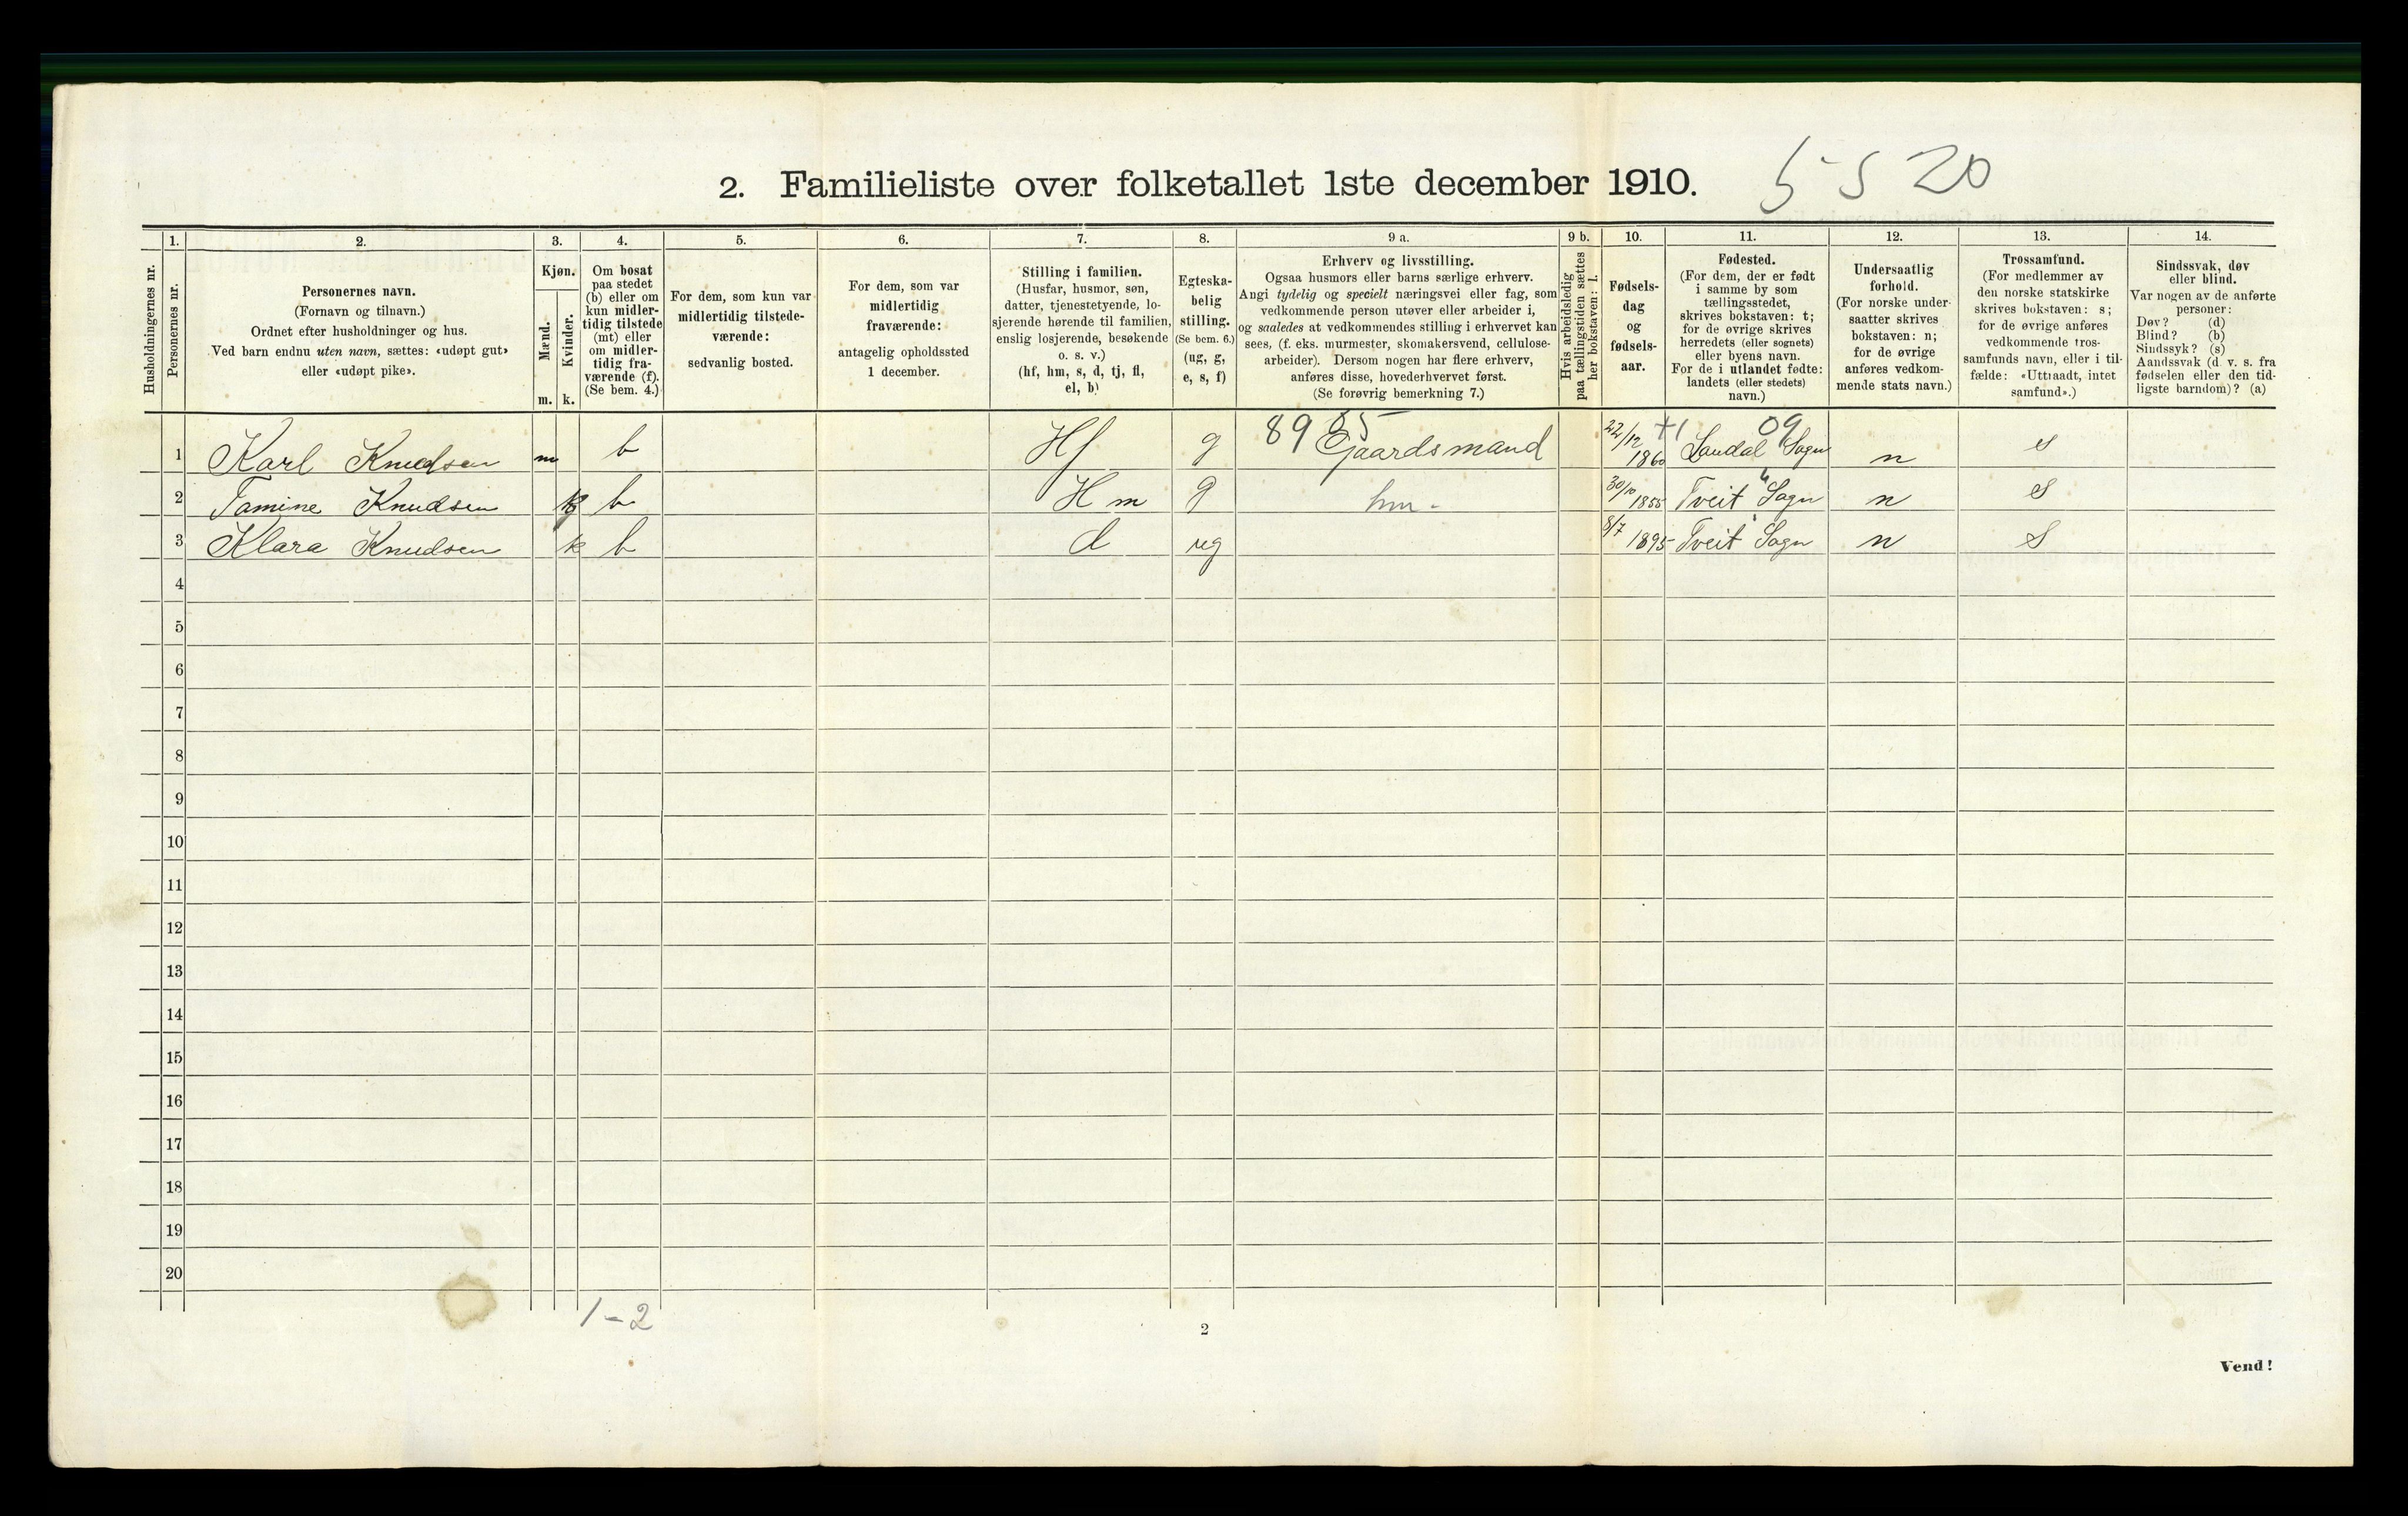 2. Familieliste over folketallet 1ste december 1910. 5520
Husholdningernes nr.
1. Personernes nr.
2. Personernes navn.
(Fornavn og tilnavn.)
Ordnet efter husholdninger og hus.
Ved barn endnu uten navn, sættes: «udøpt gut»
eller «udøpt pike».
3. Kjøn.
Mænd. Kvinder.
m. k.
4. Om bosat
paa stedet
(b) eller om
kun midler-
tidig tilstede
(mt) eller
om midler-
tidig fra-
værende (f).
(Se bem. 4.)
5. For dem, som kun var
midlertidig tilstede-
værende:
sedvanlig bosted.
6. For dem, som var
midlertidig
fraværende:
antagelig opholdssted
1 december.
7. Stilling i familien.
(Husfar, husmor, søn,
datter, tjenestetyende, lo-
sjerende hørende til familien,
enslig losjerende, besøkende
o. s. v.)
(hf, hm, s, d, tj, fl,
el, b)
8. Egteska-
belig
stilling.
(Se bem. 6.)
(ug, g,
e, s, f)
9 a. Erhverv og livsstilling.
Ogsaa husmors eller barns særlige erhverv.
Angi tydelig og specielt næringsvei eller fag, som
vedkommende person utøver eller arbeider i,
og saaledes at vedkommendes stilling i erhvervet kan
sees, (f. eks. murmester, skomakersvend, cellulose-
arbeider). Dersom nogen har flere erhverv,
anføres disse, hovederhvervet først.
(Se forøvrig bemerkning 7.)
9 b. Hvis arbeidsledig
paa tællingstiden sættes
her bokstaven: l.
10. Fødsels-
dag
og
fødsels-
aar.
11. Fødested.
(For dem, der er født
i samme by som
tællingsstedet,
skrives bokstaven: t;
for de øvrige skrives
herredets (eller sognets)
eller byens navn.
For de i utlandet fødte:
landets (eller stedets)
navn.)
12. Undersaatlig
forhold.
(For norske under-
saatter skrives
bokstaven: n;
for de øvrige
anføres vedkom-
mende stats navn.)
13. Trossamfund.
(For medlemmer av
den norske statskirke
skrives bokstaven: s;
for de øvrige anføres
vedkommende tros-
samfunds navn, eller i til-
fælde: «Uttraadt, intet
samfund».)
14. Sindssvak, døv
eller blind.
Var nogen av de anførte
personer:
Døv? (d)
Blind? (b)
Sindssyk? (s)
Aandssvak (d. v. s. fra
fødselen eller den tid-
ligste barndom)? (a)
1 Karl Knudsen m b Hf g Gaardsmand 22/12 1860 Sogn n s
2 Tamine Knudsen k b Hm g hm. 30/10 1855 Tveit Sogn n s
3 Klara Knudsen k b d ug 8/7 1895 Tveit Sogn n s
4
5
6
7
8
9
10
11
12
13
14
15
16
17
18
19
20
1-2
2
Vend!